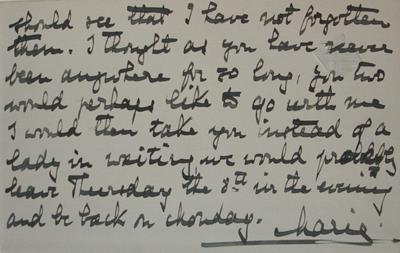 should see that I have not forgotten
them. I thought as you have never
been anywhere for so long, you two
would perhaps like to go with me
I would then take you instead of a
lady in waiting we would probably
leave Thursday the 8th in the evening
and be back on Monday.
Marie.